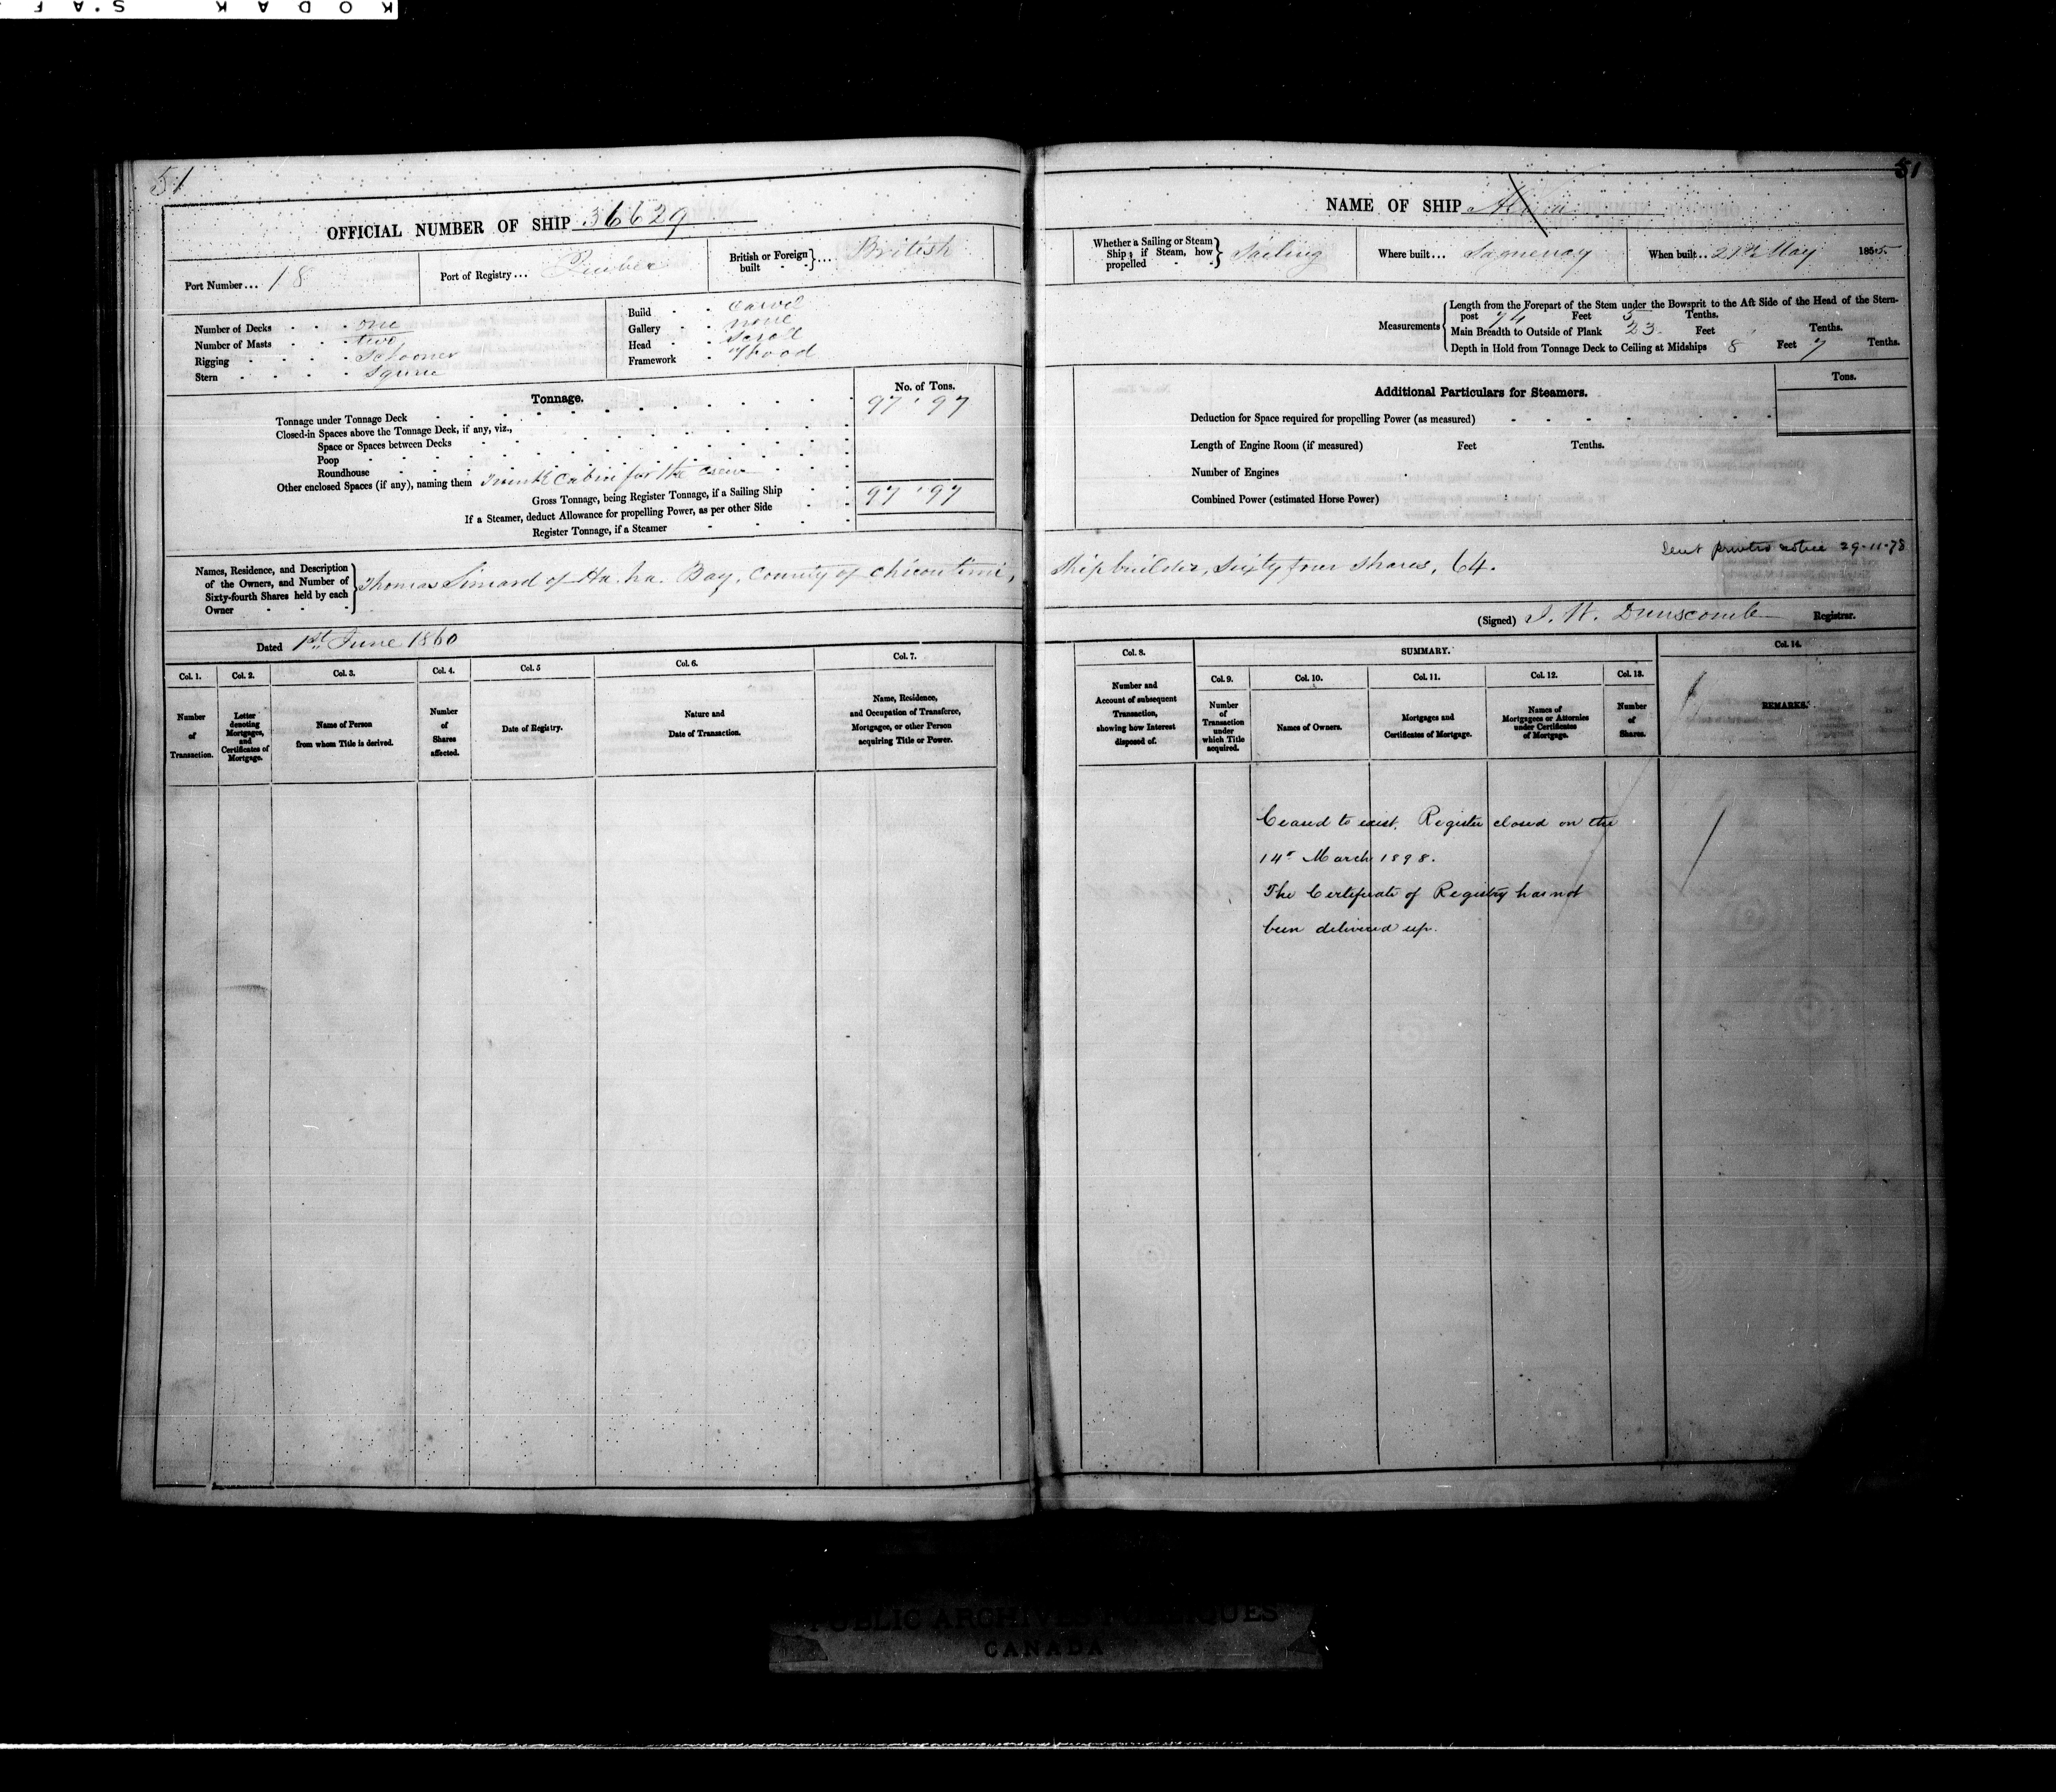 KODAK S.A F
51
OFFICIAL NUMBER OF SHIP 36629
Port Number... 18
Port of Registry... Quebec
British or Foreign built ... British
Number of Decks one
Number of Masts two
Rigging Schooner
Stern Square
Build Carvel
Gallery none
Head Scroll
Framework Wood
Tonnage.
No. of Tons.
Tonnage under Tonnage Deck 97.97
Closed-in Spaces above the Tonnage Deck, if any, viz.,
Space or Spaces between Decks
Poop
Roundhouse
Other enclosed Spaces (if any), naming them cabin for the crew
Gross Tonnage, being Register Tonnage, if a Sailing Ship 97.97
If a Steamer, deduct Allowance for propelling Power, as per other Side
Register Tonnage, if a Steamer
Names, Residence, and Description
of the Owners, and Number of
Sixty-fourth Shares held by each
Owner
Thomas Simard of Ha. ha. Bay, County of Chicoutimi,
Dated 1st June 1860
Col. 1.
Number
of
Transaction.
Col. 2.
Letter
denoting
Mortgages,
and
Certificates of
Mortgage.
Col. 3.
Name of Person
from whom Title is derived.
Col. 4.
Number
of
Shares
affected.
Col. 5
Date of Registry.
Col. 6.
Nature and
Date of Transaction.
Col. 7.
Name, Residence,
and Occupation of Transferee,
Mortgagee, or other Person
acquiring Title or Power.
51
NAME OF SHIP
Whether a Sailing or Steam
Ship; if Steam, how
propelled
Sailing
Where built... Saguenay
When built... May 1855
Measurements
Length from the Forepart of the Stem under the Bowsprit to the Aft Side of the Head of the Stern-
post 74 Feet 5 Tenths.
Main Breadth to Outside of Plank 23 Feet Tenths.
Depth in Hold from Tonnage Deck to Ceiling at Midships 8 Feet 7 Tenths.
Additional Particulars for Steamers.
Tons.
Deduction for Space required for propelling Power (as measured)
Length of Engine Room (if measured) Feet Tenths.
Number of Engines
Combined Power (estimated Horse Power)
Sent printed notice 29-11-78
Ship builder, Sixty four Shares, 64.
(Signed) J. W. Dunscomb Registrar.
Col. 8.
Number and
Account of subsequent
Transaction,
showing how Interest
disposed of.
SUMMARY.
Col. 9.
Number
of
Transaction
under
which Title
acquired.
Col. 10.
Names of Owners.
Col. 11.
Mortgages and
Certificates of Mortgage.
Col. 12.
Names of
Mortgagees or Attornies
under Certificates
of Mortgage.
Col. 13.
Number
of
Shares.
Col. 14.
REMARKS.
Ceased to exist. Register closed on the
14th March 1898.
The Certificate of Registry has not
been delivered up.
PUBLIC ARCHIVES PUBLIQUES
CANADA